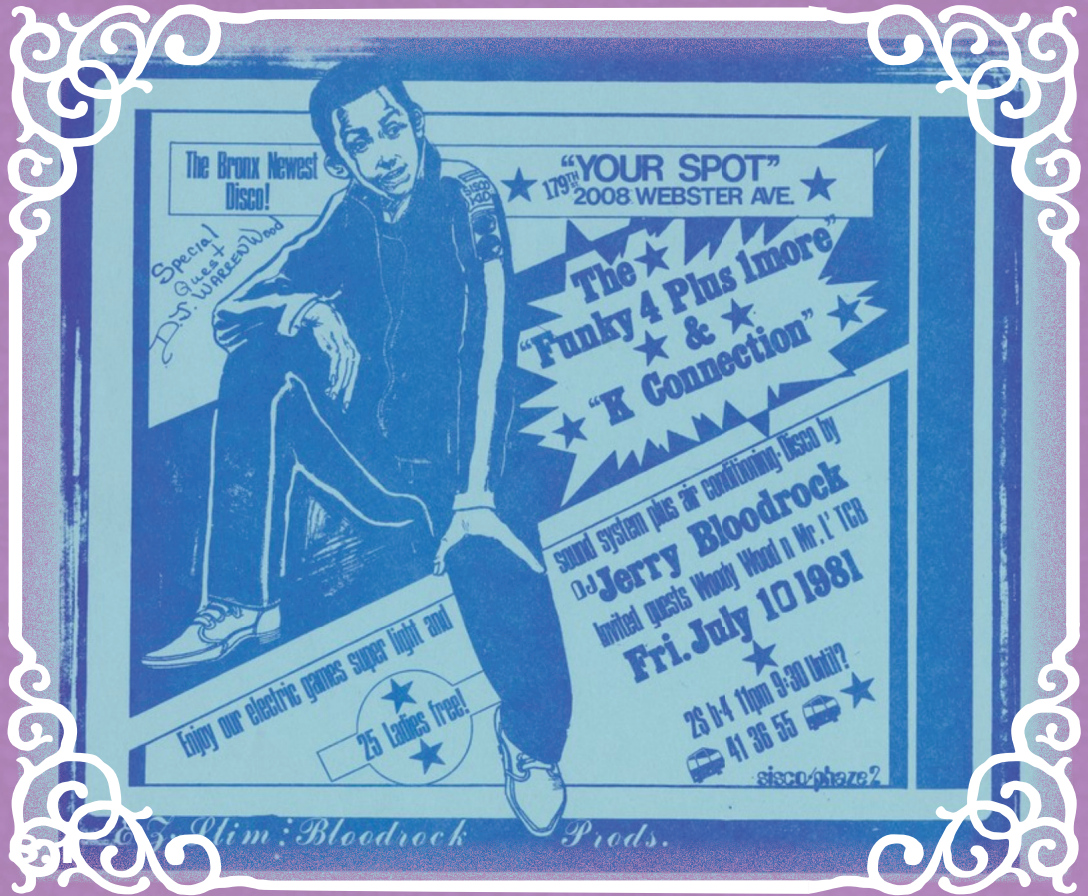 The Bronx Newest
Disco!
"YOUR SPOT"
179TH 2008 WEBSTER AVE.
Special
Guest
D.J. WARREN Wood
DISCO
KID
The
"Funky 4 Plus 1more"
&
"K Connection"
Enjoy our electric games super light and
sound system plus air conditioning. Disco by
DJ Jerry Bloodrock
Invited guests Woody Wood n Mr. L' TCB
Fri. July 10 1981
25 Ladies free!
2$ b-4 11pm 9:30 Until?
41 36 55
sisco/phaze 2
EZ. Slim : Bloodrock Prods.